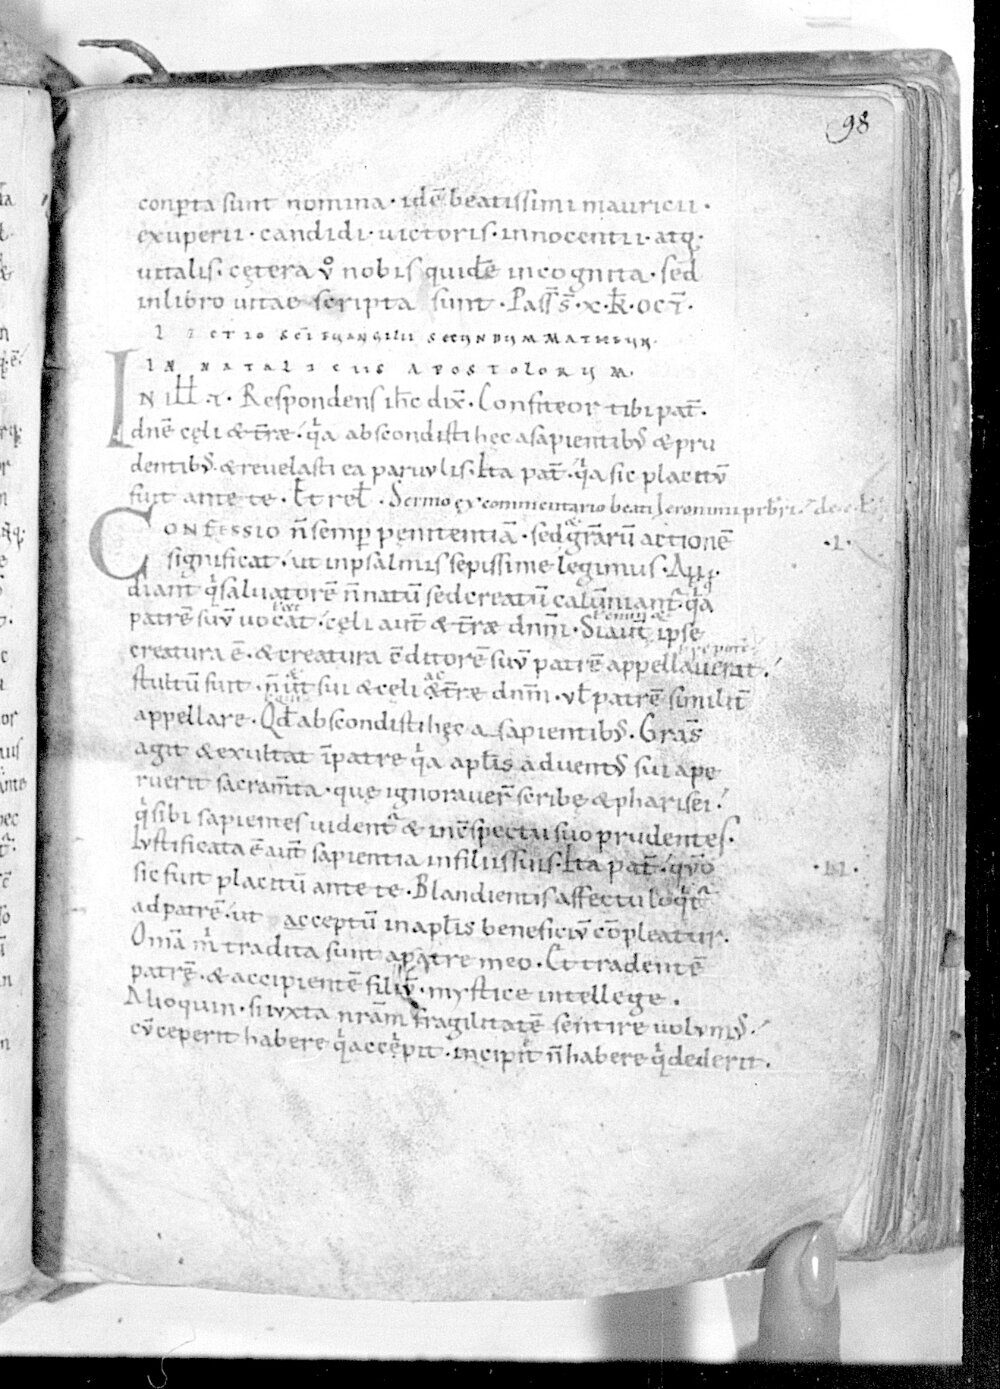 98
conp̄ta sunt nomina · idē beatissimi mauricii ·
exuperii · candidi · uictoris · innocentii · atq;
uitalis · cętera ů nobis quidē incognita · sed
in libro uitae scripta sunt · Pass̄ s̄ · x · kł · oct̄ ·
LECTIO SCĪ EUANGELII SECUNDUM MATHEUM ·
IN NATALICIIS APOSTOLORUM ·
IN ILL̄ T̄ · Respondens ihc̄ dix̄ · Confiteor tibi pat̄ ·
dn̄e cęli & t̄ræ · q̇a abscondisti hęc a sapientib; & pru
dentib; & reuelasti ea paruulis · Ita pat̄ · q̇a sic placitū
fuit ante te · Et rel̄ · Sermo ex commentario beati heronimi prb̄ri
CONFESSIO n̄ semp̄ penitentiā · sed & gr̄arū actionē ·I·
significat · ut in psalmis sepissime legimus · Au
diant q̇ saluatorē n̄ natū sed creatū calūniant̄ · q̇a
patrē suū uocat · cęli aut̄ & t̄ræ dnm̄ · Si aut̄ ipse
creatura ē · & creatura c̄ditorē suū patrē appellauerit ·
stultū fuit · n̄ ut̄ sui & cęli & t̄ræ dnm̄ · ul̄ patrē similit̄
appellare · Qd̄ abscondisti hęc a sapientib; · Gr̄as
agit & exultat ī patre q̇a apl̄is aduent; sui ape
ruerit sacram̄ta · que ignorauer̄ scribę & pharisei ·
q̇ sibi sapientes uident̄ & in c̄spectu suo prudentes ·
Iustificata ē aut̄ sapientia in filiis suis · Ita pat̄ · qm̄ ·II·
sic fuit placitū ante te · Blandientis affectu loq̇t̄
ad patrē · ut acceptū in apl̄is beneficiū c̄pleatur ·
Om̄a m̊ tradita sunt a patre meo · Et tradentē
patrē · & accipientē filiū · mystice intellege ·
Alioquin · si iuxta nr̄am fragilitatē sentire uolum; ·
cū ceperit habere q̇ accēpit · incipit n̄ habere q̇ dederit ·